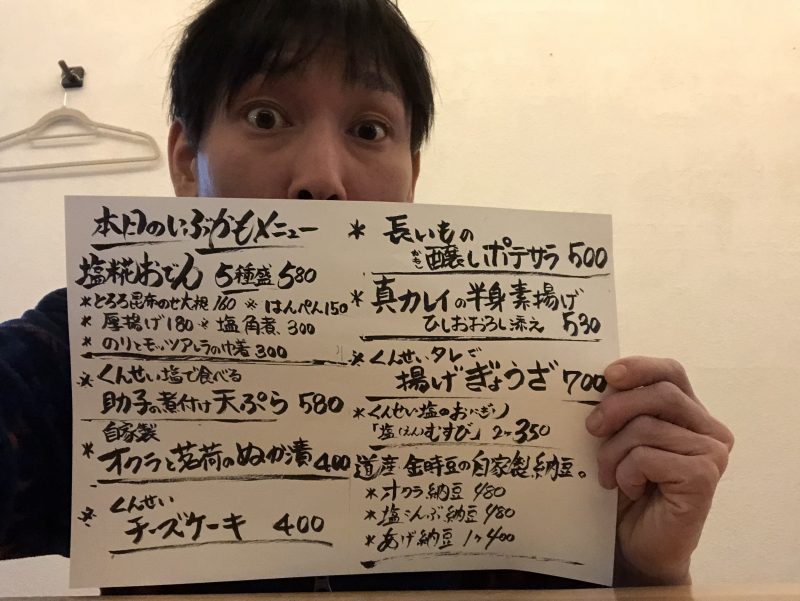 本日のいぶかもメニュー
塩糀おでん 5種盛 580
*とろろ昆布のせ大根 160 *はんぺん150
*厚揚げ180 *塩角煮 300
*のりとモッツァレラの巾着 300
*くんせい塩で食べる
助子の煮付け天ぷら 580
自家製
*オクラと茗荷のぬか漬 400
*くんせい
チーズケーキ 400
*長いもの
醸しポテサラ 500
*真カレイの半身素揚げ
ひしおおろし添え 530
*くんせいタレで
揚げぎょうざ 700
*くんせい塩のおにぎり
「塩(えん)むすび」 2ヶ350
道産 金時豆の自家製納豆。
*オクラ納豆 480
*塩こんぶ納豆 480
*あげ納豆 1ヶ400